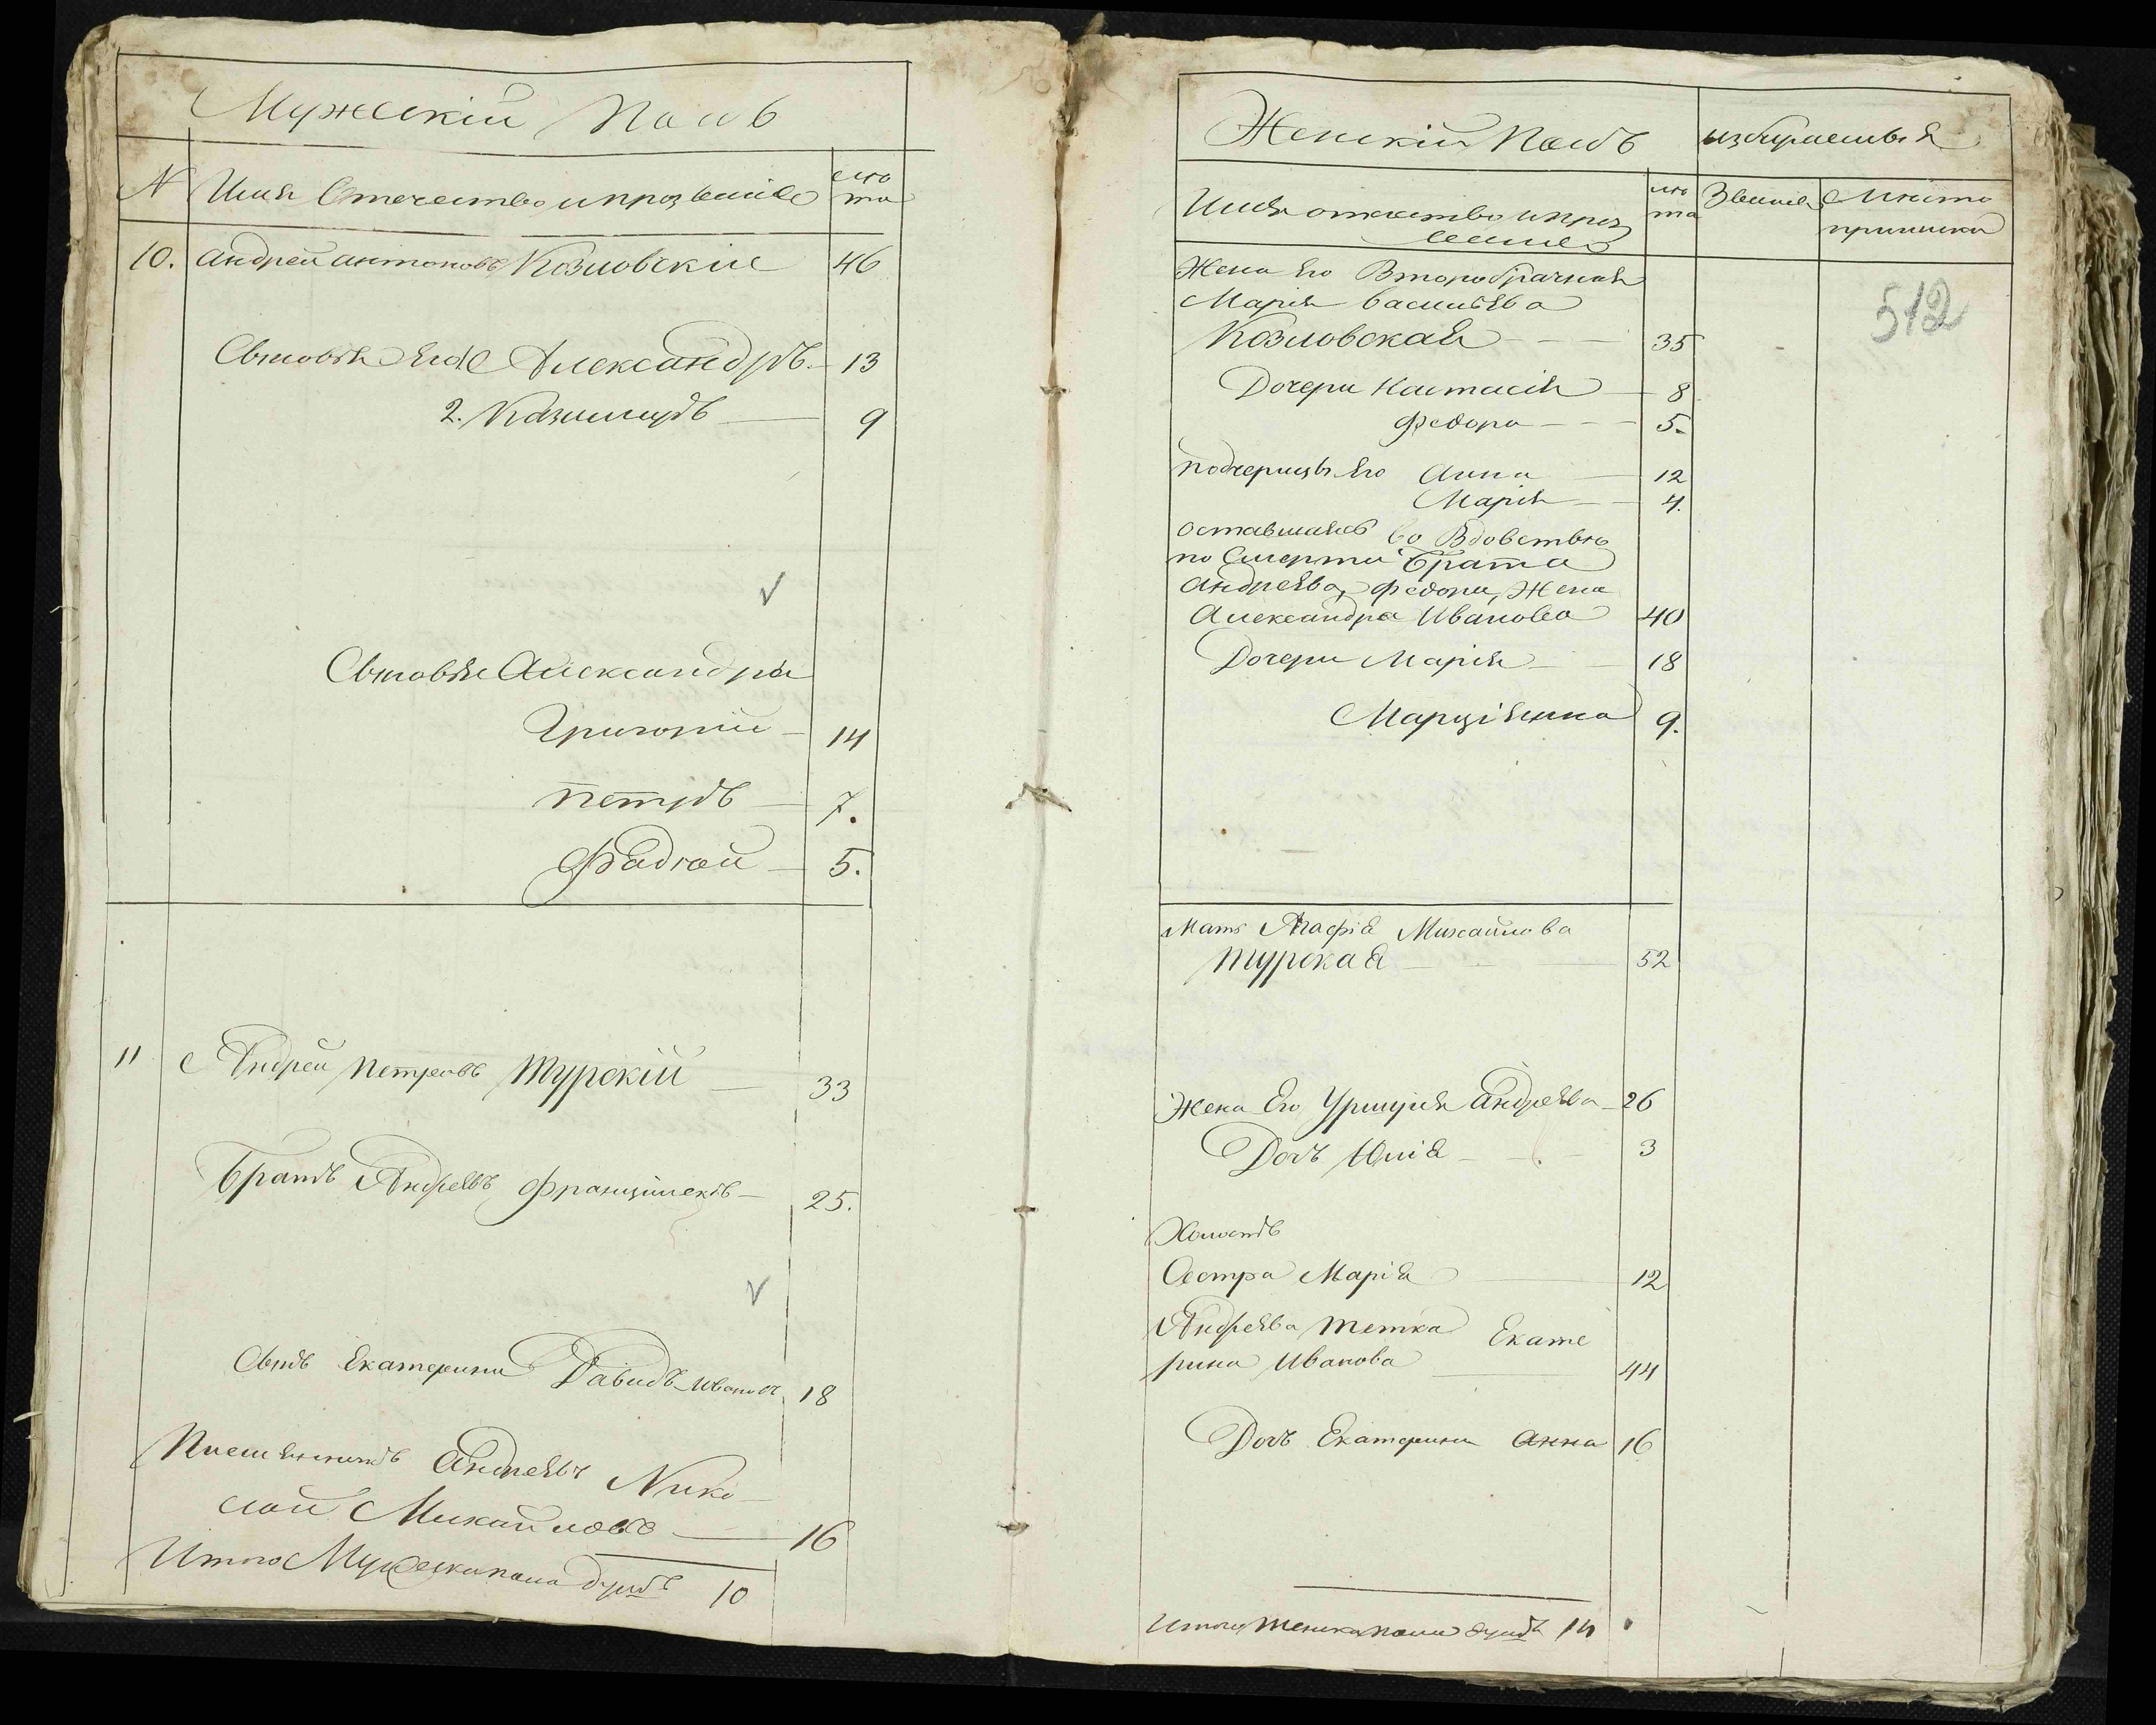 Мужескій Полъ
N Имя Отечество и прозваніе лѣта
10. Андрей Антоновъ Козловскіе 46
Сыновья Его Александръ 13
2. Казимиръ 9
Сыновья Александры
Григорій 14
Петръ 7.
Фадѣй 5.
11 Андрей Петровъ Турскій 33
Братъ Андреявъ Францишекъ 25.
Сынъ Екатерины Давидъ Иванов 18
Племянникъ Андреявъ Нико
лай Михайловъ 16
Итого Мужеска пола душъ 10
Женскій Полъ
Имя отчество и проз
ваніе
лѣта
избираемыя
Званія Мѣсто
приписки
512
Жена Его Второбрачная
Марія Васильява
Козловская 35
Дочери Настасія 8
Федора 5
подчерицы Его Анна 12
Марія 4.
оставшаяся во Вдовствѣ
по Смерти Брата
Андреява, Федоры, Жена
Александра Иванова 40
Дочери Марія 18
Марціянна 9.
Мать Агафія Михайлова
Турская 52
Жена Его Уршуля Андреява 26
Дочь Юлія 3
Холостъ
Сестра Марія 12
Андреява Тетка Екате
рина Иванова 44
Дочь Екатерины Анна 16
Итого Женска пола душъ 14